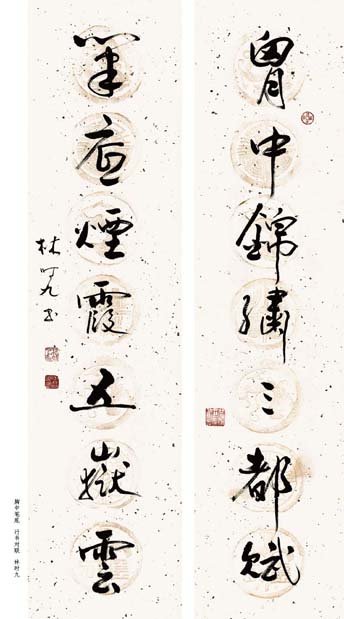 胷中錦繡三都賦
筆底煙霞五嶽雲
林时九书
胸中笔底 行书对联 林时九